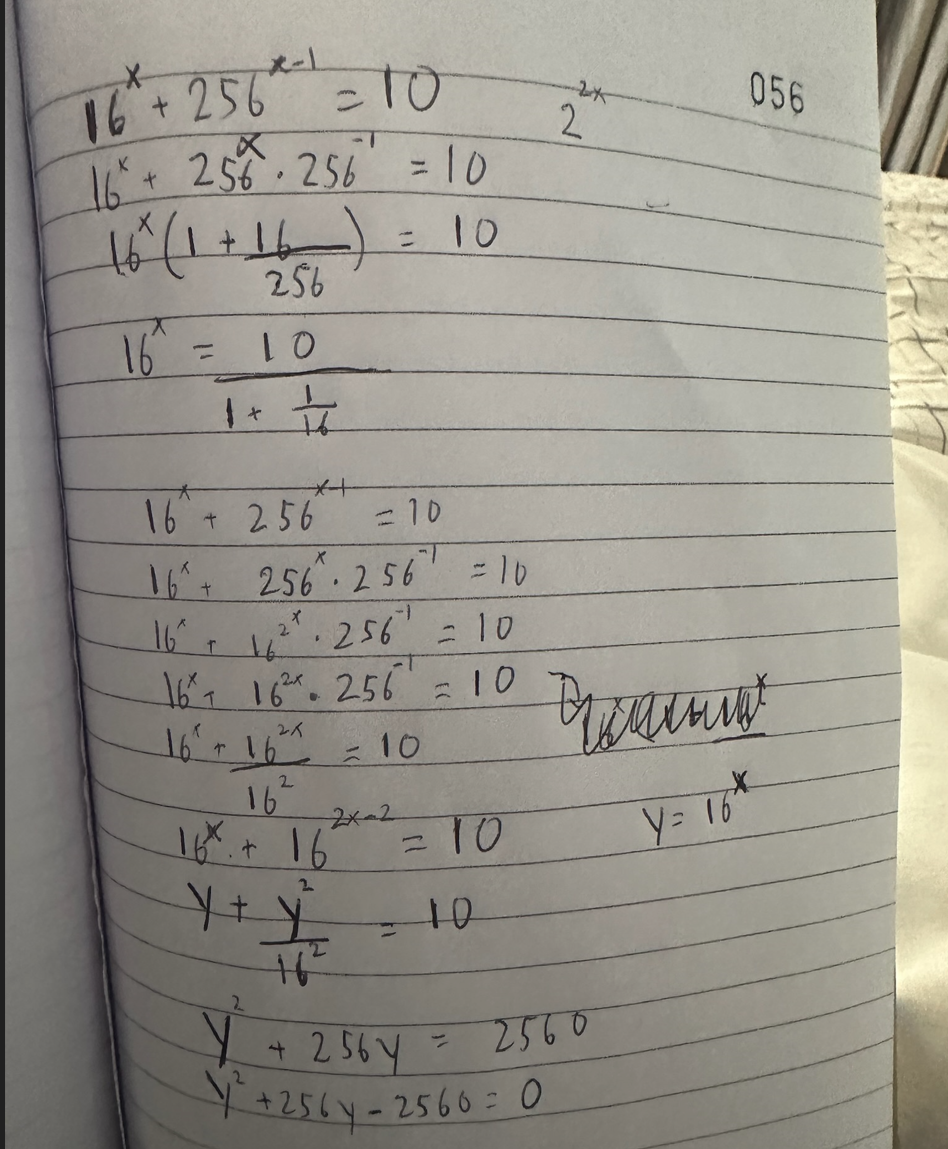 16^x + 256^(x-1) = 10
2^(2x)
056
16^x + 256^x · 256^(-1) = 10
16^x (1 + 16/256) = 10
16^x = 10/(1 + 1/16)
16^x + 256^(x-1) = 10
16^x + 256^x · 256^(-1) = 10
16^x + 16^2^x · 256^(-1) = 10
16^x + 16^(2x) · 256^(-1) = 10
16^x + 16^(2x)/16^2 = 10
16^x + 16^(2x-2) = 10
y = 16^x
y + y^2/16^2 = 10
y^2 + 256y = 2560
y^2 + 256y - 2560 = 0